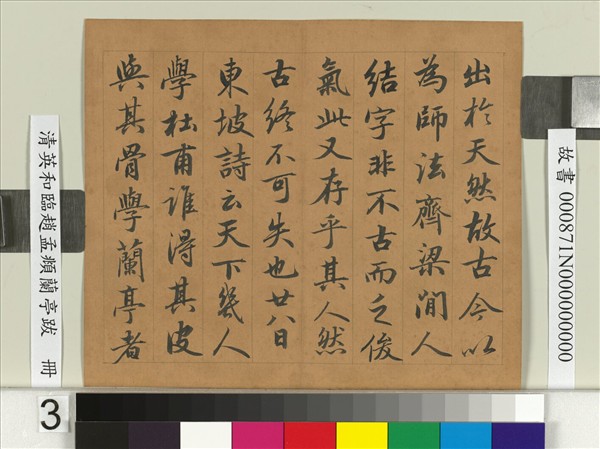 出於天然故古今以
為師法齊梁間人
結字非不古而乏俊
氣此又存乎其人然
古終不可失也廿八日
東坡詩云天下幾人
學杜甫誰得其皮
與其骨學蘭亭者
故書 000871N000000000
清英和臨趙孟頫蘭亭跋 冊
3